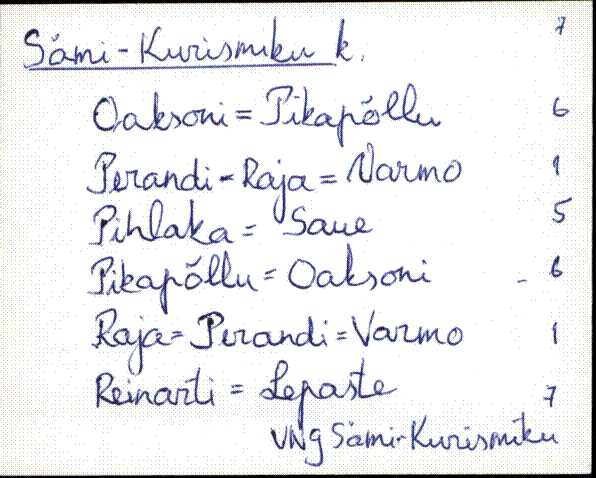 Sämi-Kurismiku k. 7
Oaksoni = Pikapõllu 6
Perandi - Raja = Varmo 1
Pihlaka = Saue 5
Pikapõllu = Oaksoni - 6
Raja = Perandi = Varmo 1
Reinarti = Lepaste 7
VNg Sämi-Kurismiku